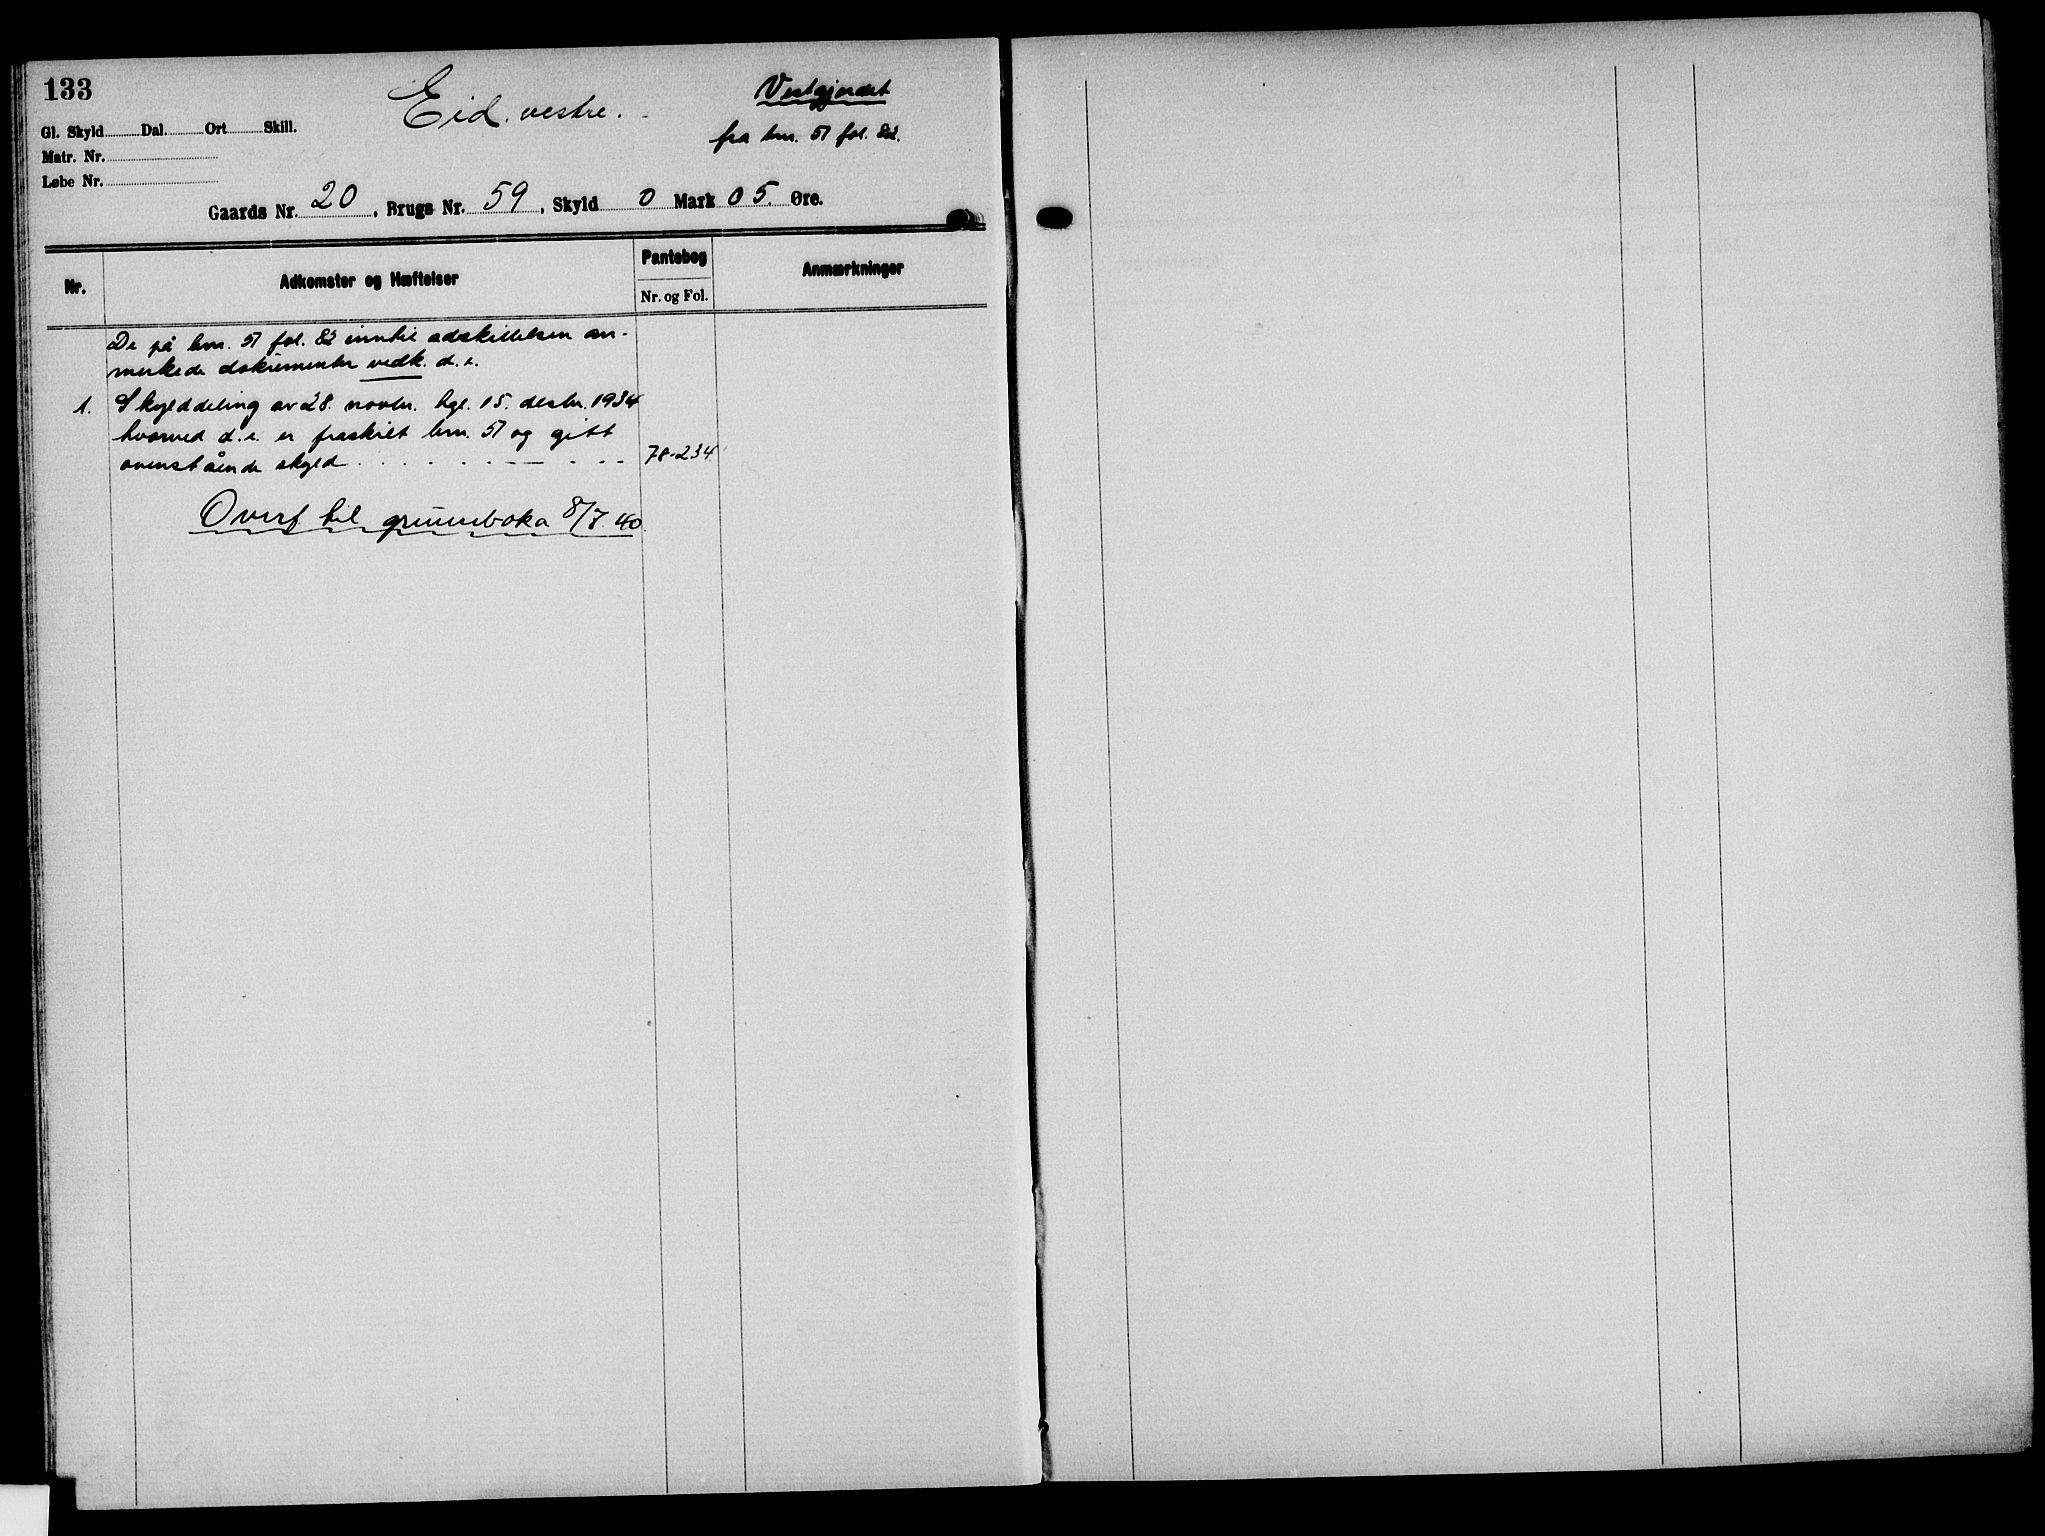 133
Eid vestre.
Vestgjerdet
Gl. Skyld Dal. Ort Skill.
fra bnr. 57 fol. 82.
Matr. Nr.
Løbe Nr.
Gaards Nr. 20, Brugs Nr. 59, Skyld 0 Mark 05. Øre.
Nr. Adkomster og Hæftelser Pantebog Anmærkninger
Nr. og Fol.
De på bnr. 57 fol. 82 inntil adskillelsen an-
merkede dokumenter vedk. d. e.
1. Skylddeling av 28. novbr. tgl. 15. desbr. 1934
hvorved d. e. er fraskilt bnr. 57 og gitt
ovenstående skyld 78-234
Overf til grunnboka 8/7 40